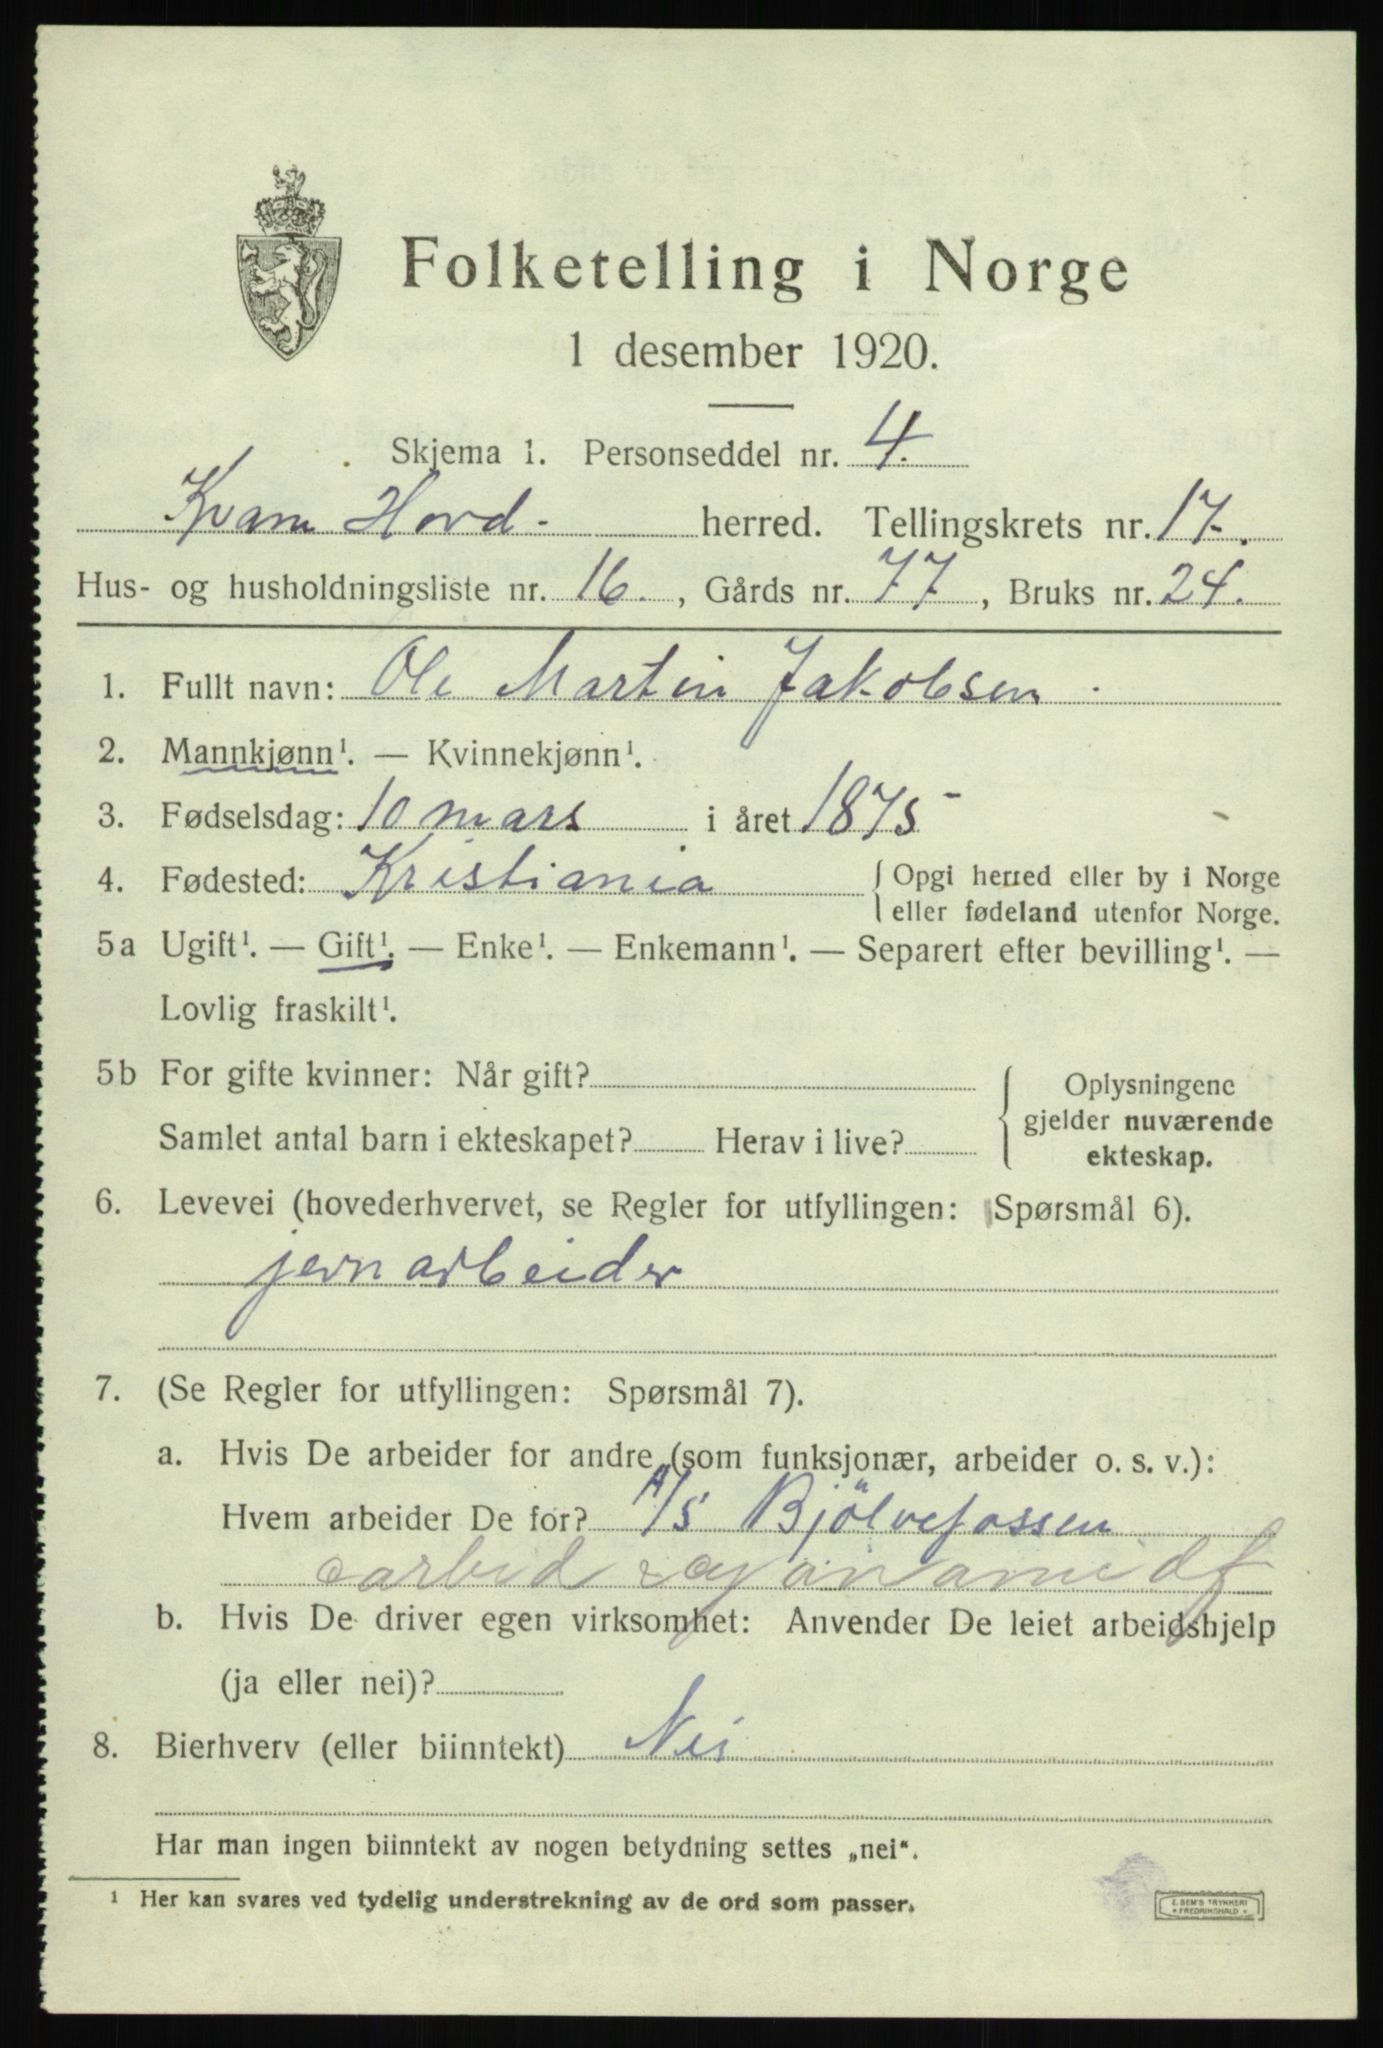 Folketelling i Norge
1 desember 1920.
Skjema 1. Personseddel nr. 4.
Kvam Hord. herred. Tellingskrets nr. 17.
Hus- og husholdningsliste nr. 16., Gårds nr. 77, Bruks nr. 24.
1. Fullt navn: Ole Martin Jakobsen.
2. Mannkjønn¹. — Kvinnekjønn¹.
3. Fødselsdag: 10 mars i året 1875
4. Fødested: Kristiania { Opgi herred eller by i Norge
eller fødeland utenfor Norge.
5a Ugift¹. — Gift¹. — Enke¹. — Enkemann¹. — Separert efter bevilling¹. —
Lovlig fraskilt¹.
5b For gifte kvinner: Når gift?
Samlet antal barn i ekteskapet? Herav i live?
Oplysningene
gjelder nuværende
ekteskap.
6. Levevei (hovederhvervet, se Regler for utfyllingen: Spørsmål 6).
jernarbeider
7. (Se Regler for utfyllingen: Spørsmål 7).
a. Hvis De arbeider for andre (som funksjonær, arbeider o. s. v.):
Hvem arbeider De for? A/S Bjölvefossen
carbid & cyanamidf
b. Hvis De driver egen virksomhet: Anvender De leiet arbeidshjelp
(ja eller nei)?
8. Bierhverv (eller biinntekt) Nei
Har man ingen biinntekt av nogen betydning settes „nei“.
¹ Her kan svares ved tydelig understrekning av de ord som passer.
E. SEM'S TRYKKERI
• FREDRIKSHALD •